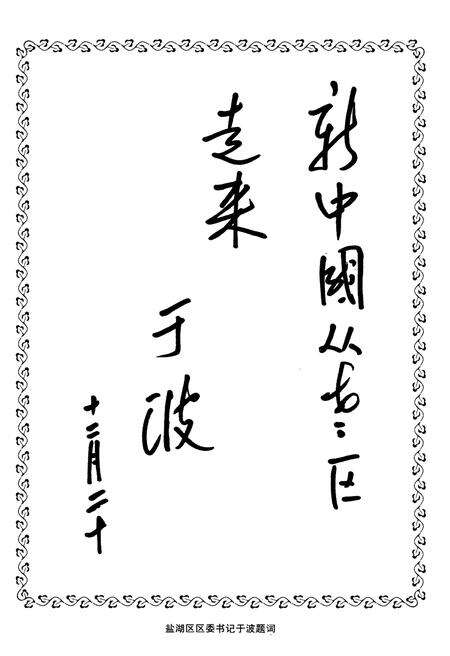 新中國从老区
走来
于波
十二月二十
盐湖区区委书记于波题词